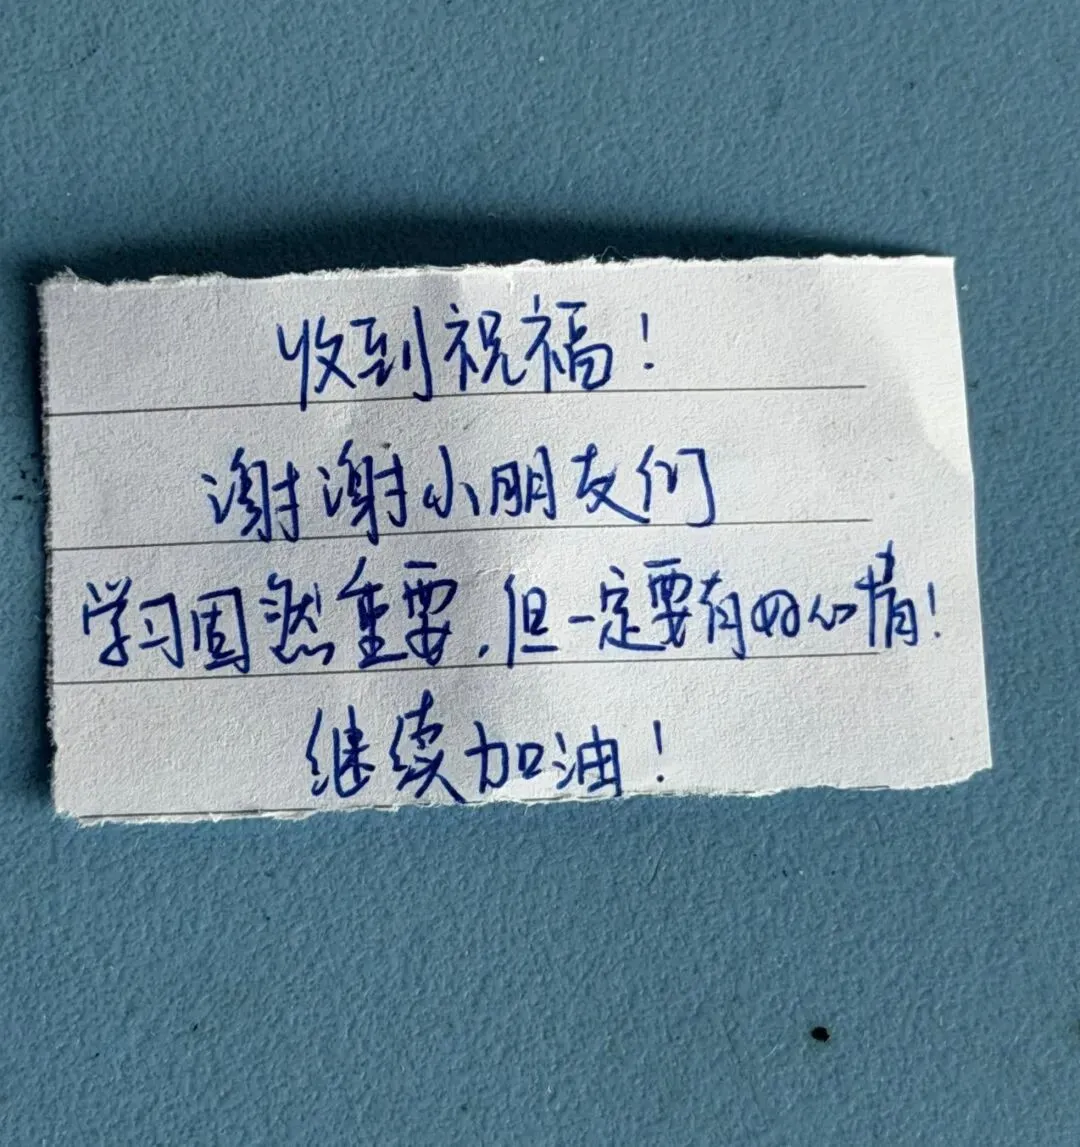 收到祝福！
谢谢小朋友们
学习固然重要，但一定要有好心情！
继续加油！